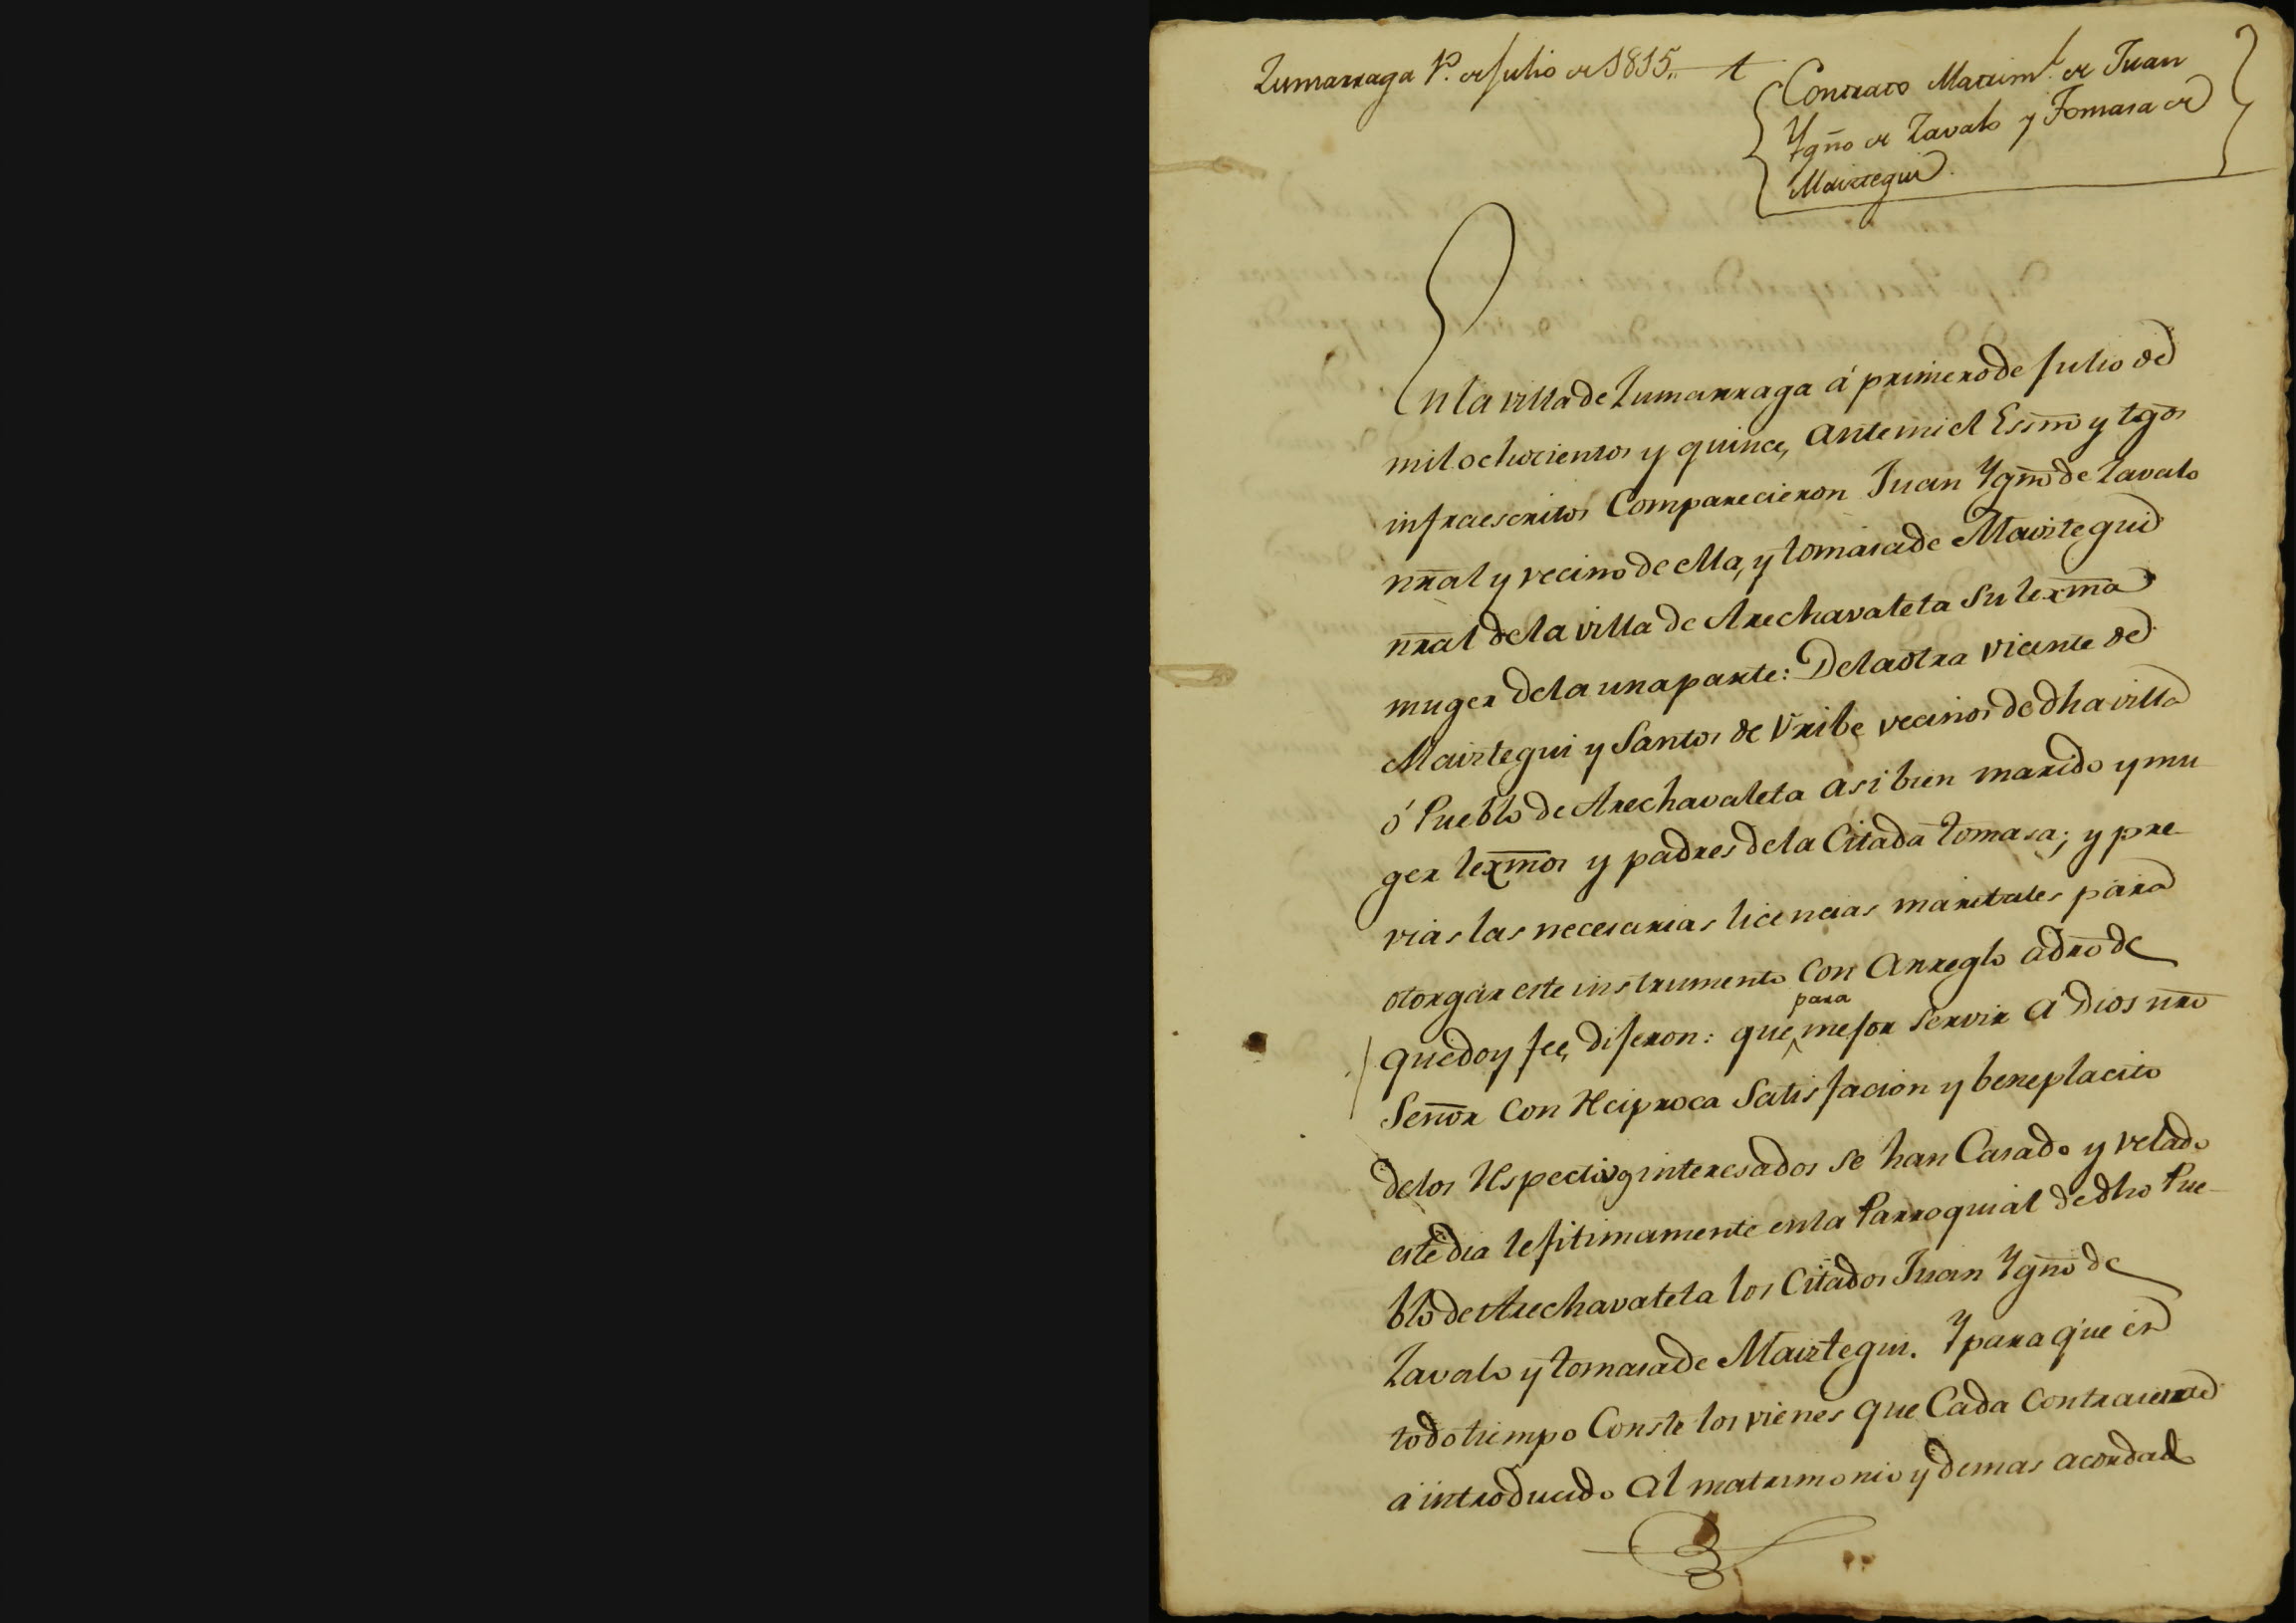 Zumarraga 1º. de Julio de 1815.
Contrato Matriml. de Juan
Ygño de Zavalo y Tomasa de
Maiztegui.
En la villa de Zumarraga á primero de Julio de
mil ochocientos y quince, ante mi el Essno y tgos
infraescritos Comparecieron Juan Ygño de Zavalo
nral y vecino de ella, y tomasa de Maiztegui
nral de la villa de Arechavaleta su lexma
muger de la una parte: De la otra Vicente de
Maiztegui y Santos de Vribe vecinos de dha villa
ó Pueblo de Arechavaleta asi bien marido y mu
ger lexmos y padres de la Citada tomasa; y pre-
vias las necesarias licencias maritales para
otorgar este instrumento con arreglo a dro de
que doy fee, dijeron: que para mejor servir a Dios nro
Señor con reciproca satisfacion y beneplacito
de los respectivos interesados se han Casado y velado
este dia lejitimamente en la Parroquial de dho Pue-
blo de Arechavaleta los Citados Juan Ygño de
Zavalo y tomasa de Maiztegui. Y para que en
todo tiempo Conste los vienes que Cada contraiente
a introducido al matrimonio y demas acordado